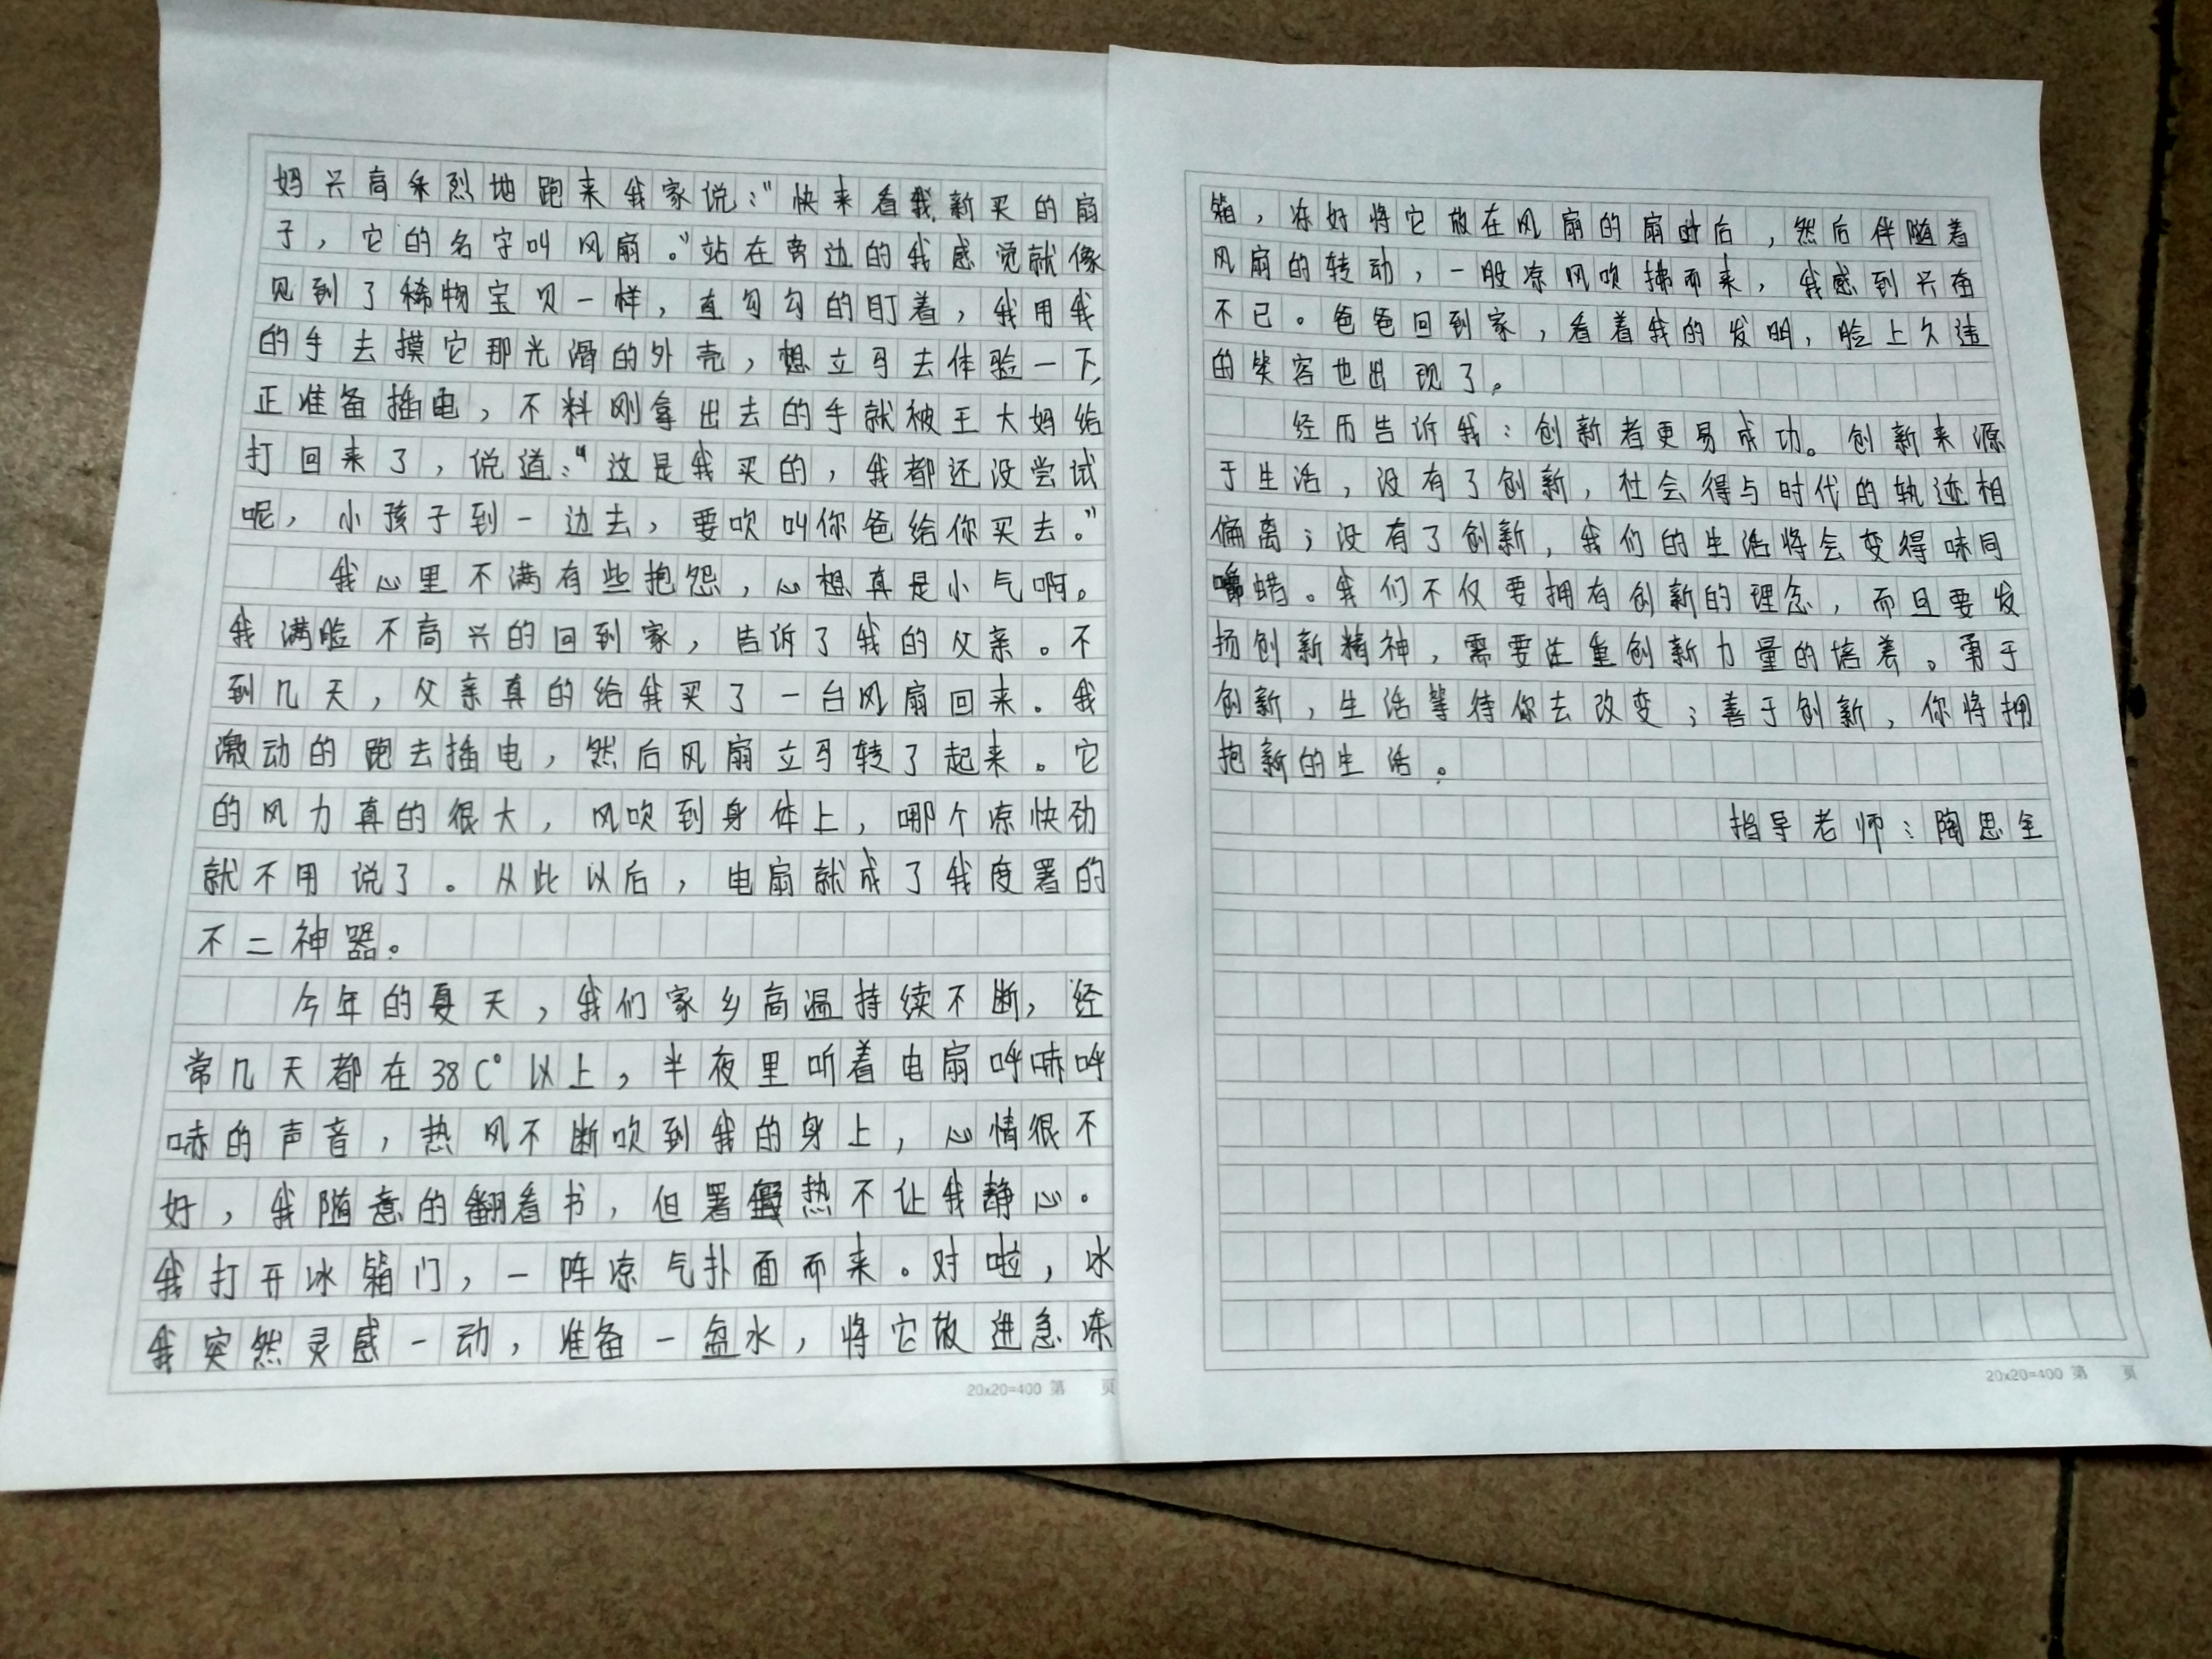 妈兴高采烈地跑来我家说："快来看我新买的扇
子，它的名字叫风扇。"站在旁边的我感觉就像
见到了稀物宝贝一样，直勾勾的盯着，我用我
的手去摸它那光滑的外壳，想立马去体验一下，
正准备插电，不料刚拿出去的手就被王大妈给
打回来了，说道："这是我买的，我都还没尝试
呢，小孩子到一边去，要吹叫你爸给你买去。"
我心里不满有些抱怨，心想真是小气啊。
我满脸不高兴的回到家，告诉了我的父亲。不
到几天，父亲真的给我买了一台风扇回来。我
激动的跑去插电，然后风扇立马转了起来。它
的风力真的很大，风吹到身体上，哪个凉快劲
就不用说了。从此以后，电扇就成了我度署的
不二神器。
今年的夏天，我们家乡高温持续不断，经
常几天都在38C°以上，半夜里听着电扇呼哧呼
哧的声音，热风不断吹到我的身上，心情很不
好，我随意的翻看书，但署热不让我静心。
我打开冰箱门，一阵凉气扑面而来。对啦，冰
我突然灵感一动，准备一盆水，将它放进急冻
20x20=400 第 页
箱，冻好将它放在风扇的扇叶后，然后伴随着
风扇的转动，一股凉风吹拂而来，我感到兴奋
不已。爸爸回到家，看着我的发明，脸上久违
的笑容也出现了。
经历告诉我：创新者更易成功。创新来源
于生活，没有了创新，社会得与时代的轨迹相
偏离；没有了创新，我们的生活将会变得味同
嚼蜡。我们不仅要拥有创新的理念，而且要发
扬创新精神，需要注重创新力量的培养。勇于
创新，生活等待你去改变；善于创新，你将拥
抱新的生活。
指导老师：陶思全
20x20=400 第 页